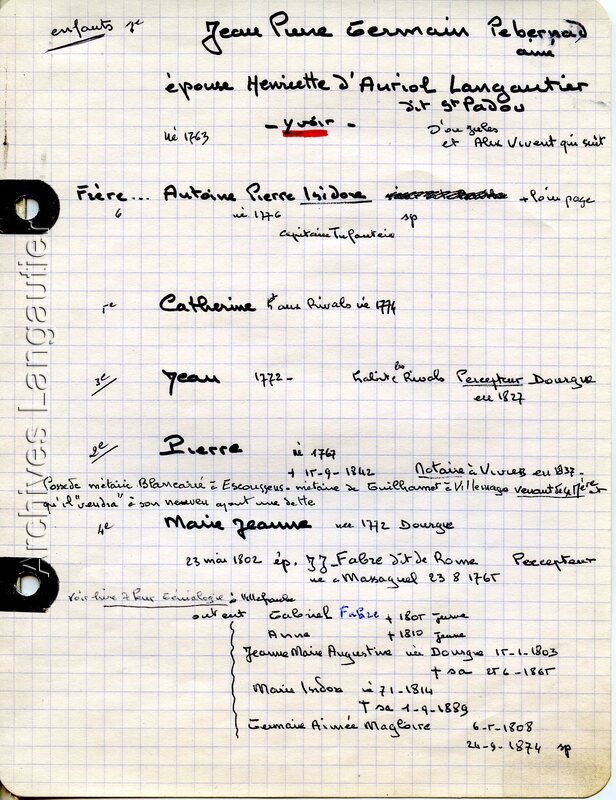 enfants
Jean Pierre Germain Pebernad
ainé
épouse Henriette d'Auriol Langautier
dit St Padou
- y voir -
né 1763
D'ou Jules
et Alex Vivent qui suit
Frère ... Antoine Pierre Isidore + loin page
6 né 1776 sp
capitaine Infanterie
Catherine Rivals né 1774
3e Jean 1772 - Rivals Percepteur Dourgne
en 1827
2e Pierre né 1767
+ 15-9-1842 Notaire à en 1837-
Possede métairie Blancairié à Escoussens - métairie de Guilhamet à Villemage venant de sa Mère
qu'il "vendra" à son neveu ayant une dette
4e Marie Jeanne née 1772 Dourgne
23 mai 1802 ép. JJ-Fabre dit de Rome Percepteur
né a Massaguel 23 8 1765
voir Génialogie
ont ent Gabriel Fabre + 1805 jeune
Anne + 1810 jeune
Jeanne Marie Augustine née Dourgne 15-1-1803
+ sa 25 6-1865
Marie Isidore né 7 1-1814
+ sa 1-9-1889
Germain Aimée Magloire 6-5-1808
24-9-1874 sp
Archives Langautier